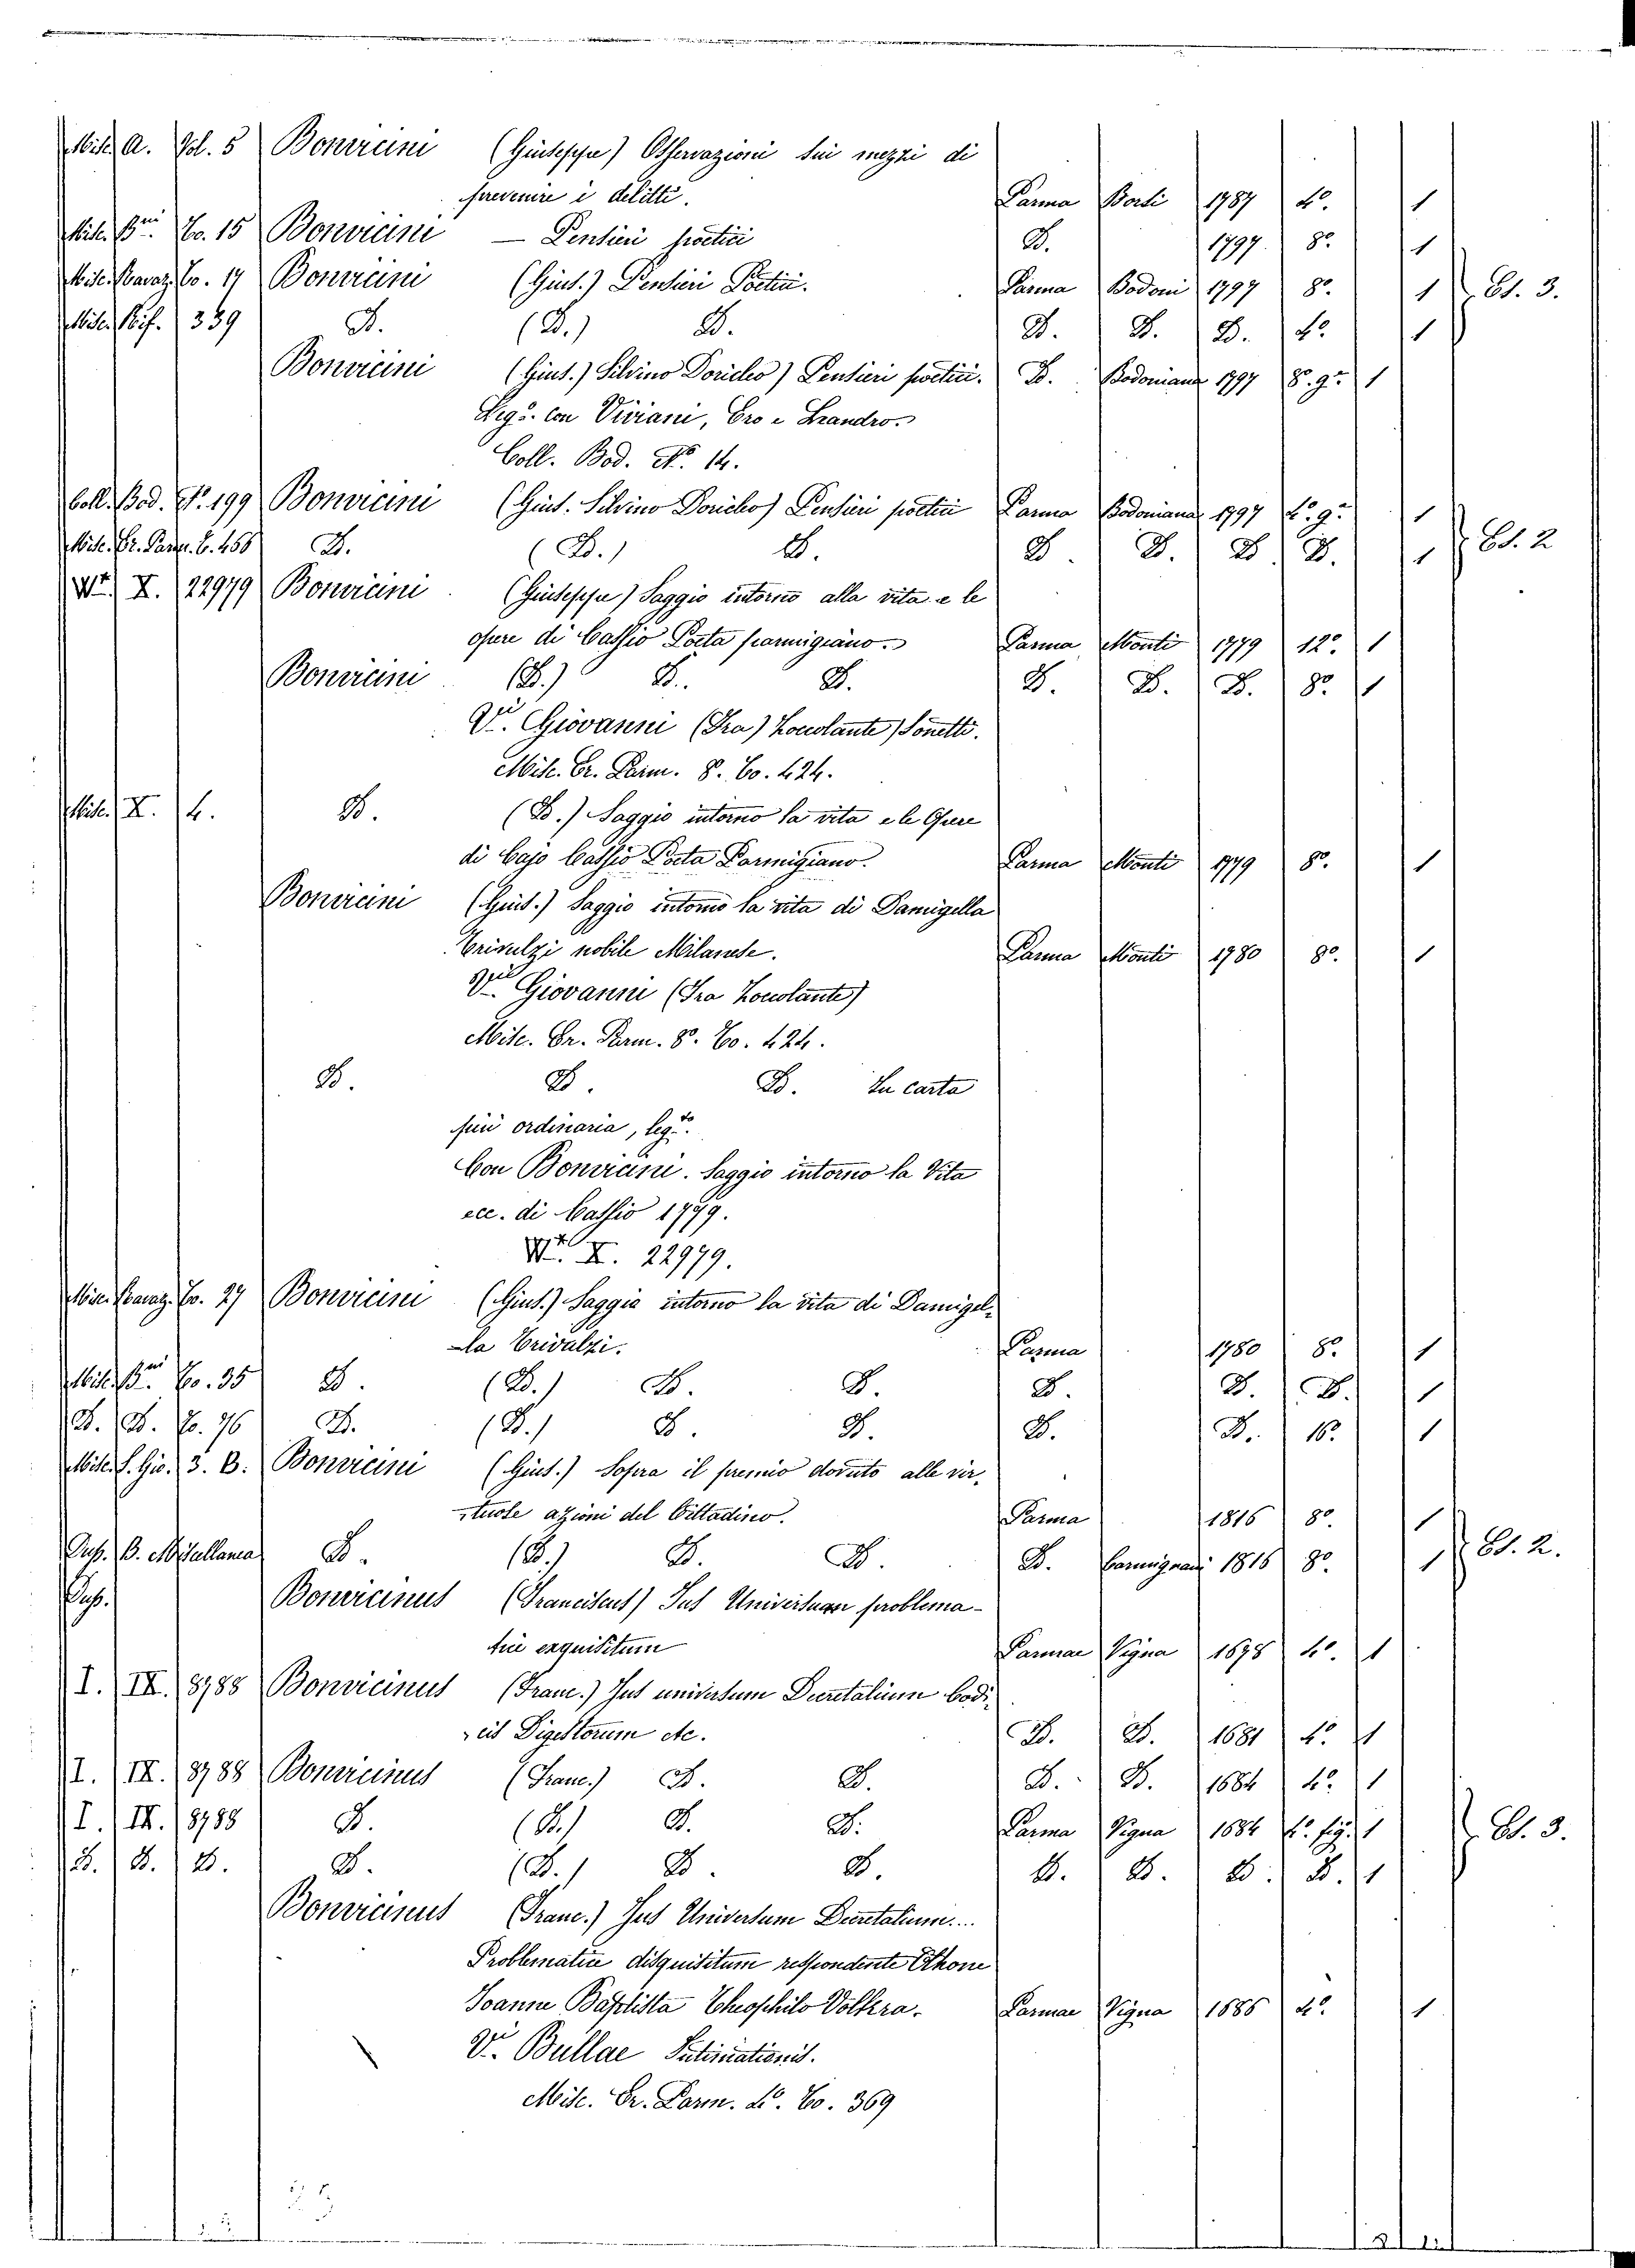 Misc. A. Vol. 5 Bonvicini (Giuseppe) Osservazioni sui mezzi di
prevenire i delitti. Parma Borsi 1787 4º. 1
Misc. Bni To. 15 Bonvicini — Pensieri poetici D. 1797. 8º 1
Misc. Ravaz. To. 17 Bonvicini (Gius.) Pensieri Poetici. Parma Bodoni 1797 8º. 1 Es. 3.
Misc. Rif. 339 D. (D.) D. D. D. D. 4º 1
Bonvicini (Gius.) Silvino Doricleo) Pensieri poetici. D. Bodoniana 1797 8º. gr. 1
Legº. con Viviani, Ero e Leandro.
Coll. Bod. Nº. 14.
Coll. Bod. Nº. 199 Bonvicini (Gius. Silvino Doricleo) Pensieri poetici Parma Bodoniana 1797 4º. gr. 1
Misc. Er. Parm. 6. 456 D. (D.) D. D. D. D. D. 1 Es. 2
Wt. X. 22979 Bonvicini (Giuseppe) Saggio intorno alla vita e le
opere di Cassio Poeta parmigiano. Parma Monti 1779 12º. 1
Bonvicini (D.) D. D. D. D. D. 8º. 1
Vi. Giovanni (Fra) Zoccolante) Sonetti.
Misc. Er. Parm. 8. To. 424.
Misc. X. 4. D. (D.) Saggio intorno la vita e le Opere
di Cajo Cassio Poeta Parmigiano. Parma Monti 1779 8º. 1
Bonvicini (Gius.) Saggio intorno la vita di Damigella
Trivulzi nobile Milanese. Parma Monti 1780 8º. 1
Vi. Giovanni (Fra Zoccolante)
Misc. Er. Parm. 8º. To. 424.
D. D. D. In carta
più ordinaria, legto.
Con Bonvicini. Saggio intorno la Vita
ecc. di Cassio 1779.
Wt. X. 22979.
Misc. Ravaz. To. 27 Bonvicini (Gius.) Saggio intorno la vita di Damigel-
la Trivulzi. Parma 1780 8º. 1
Misc. Bni To. 35 D. (D.) D. D. D. D. D. 1
D. D. To. 76 D. (D.) D. D. D. D. 16º. 1
Misc. S. Gio. 3. B. Bonvicini (Gius.) Sopra il premio dovuto alle vir-
tuose azioni del Cittadino. Parma 1816 8º. 1
Dup. B. Miscellanea D. (D.) D. D. D. Carmignani 1816 8º. 1 Es. 2.
Dup. Bonvicinus (Franciscus) Jus Universum problema-
tice exquisitum Parmae Vigna 1678 4º. 1
I. IX. 8788 Bonvicinus (Franc.) Jus universum Decretalium Codi-
cis Digestorum etc. D. D. 1681 4º. 1
I. IX. 8788 Bonvicinus (Franc.) D. D. D. D. 1684 4º. 1
I. IX. 8788 D. (D.) D. D. Parma Vigna 1684 4º. fig. 1 Es. 3.
D. D. D. D. (D.) D. D. D. D. D. D. 1
Bonvicinus (Franc.) Jus Universum Decretalium....
Problematice disquisitum respondente Othone
Joanne Baptista Theophilo Volkra. Parmae Vigna 1686 4º. 1
Vi. Bullae
Misc. Er. Parm. 4º. To. 369